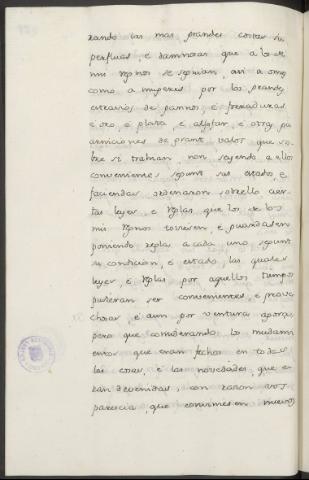 zando las mas grandes costas su
perfluas, e damnosas que a los de
mis Rgnos se seguian, asi a omes
como a mugeres por los grandes
atavios de pannos, e forraduras
e oro, e plata, e aljofar, e otras gu
arniciones de grant valor que so
bre si trahian, non seyendo a ellos
convenientes segunt sus estados, e
faciendas ordenaron sobrello cier
tas leyes, e Rglas, que los de los
mis Rgnos toviesen, e guardasen
poniendo regla a cada uno segunt
su condicion, e estado, las quales
leyes, e Rglas por aquellos tiempos
pudieran ser convenientes, e prove
chosas, e aun por ventura agora;
pero que considerando los mudami
entos que eran fechos en todas
las cosas, e las novedades, que e
ran devenidas, con razon vos
parescia que conviniesen nuevos